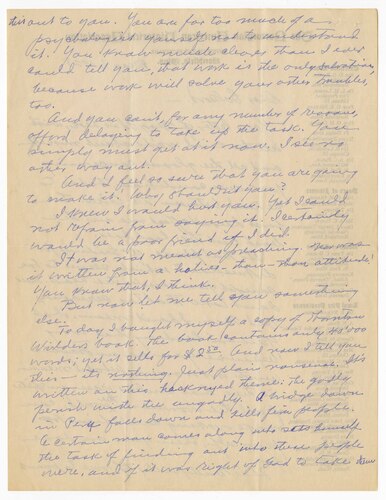 this out to you. You are far too much of a
psychologist yourself not to understand
it. You know much closer than I ever
could tell you, that work is the only salvation,
because work will solve your other troubles,
too.
And you can't, for any number of reasons,
afford delaying to take up the task. You
simply must get at it now. I see no
other way out.
And I feel so sure that you are going
to make it. Why shouldn't you?
I knew I would hurt you. Yet I could
not refrain from saying it. I certainly
would be a poor friend if I did.
It was not meant as preaching. Nor was
it written from a holier-than-thou attitude.
You know that, I think.
But now let me tell you something
else.
Today I bought myself a copy of Thornton
Wilder's book. The book contains only
words; yet it sells for $2.50. And now I tell you
this: its nothing. Just plain nonsense. It's
written on this hackneyed theme: the godly
perish with the ungodly. A bridge down
in Peru falls down and kills five people.
A certain man comes along who sets himself
the task of finding out who these people
were, and if it was right of God to take them